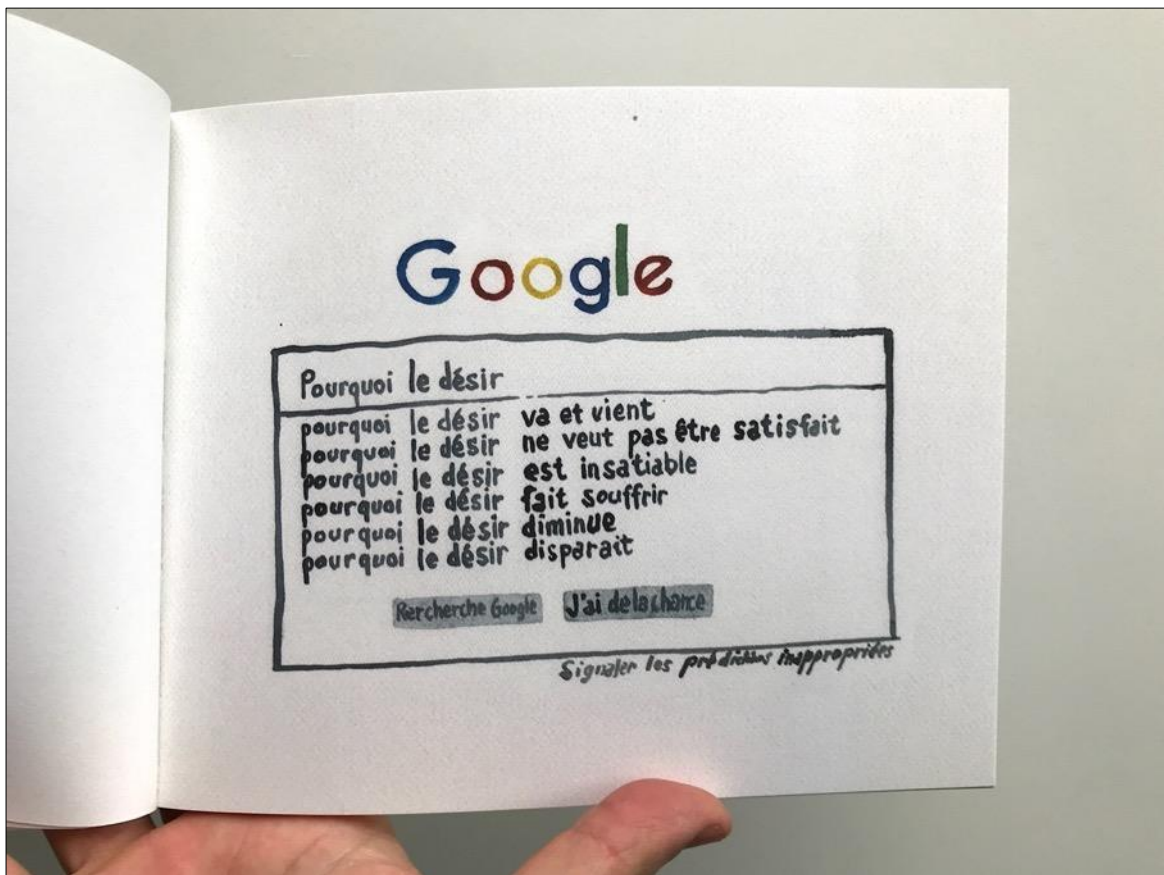 Google
Pourquoi le désir
pourquoi le désir va et vient
pourquoi le désir ne veut pas être satisfait
pourquoi le désir est insatiable
pourquoi le désir fait souffrir
pourquoi le désir diminue
pourquoi le désir disparait
Rercherche Google J'ai de la chance
Signaler les prédictions inappropriées